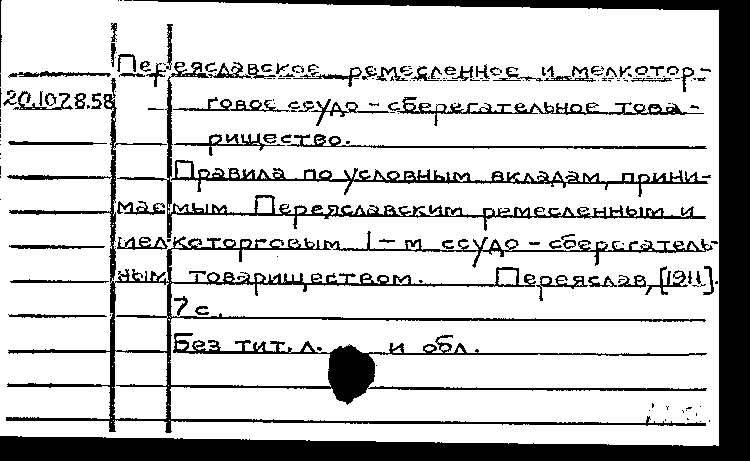 Переяславское ремесленное и мелкотор-
20.107.8.58 говое ссудо-сберегательное това-
рищество.
Правила по условным вкладам, прини-
маемым Переяславским ремесленным и
мелкоторговым 1-м ссудо-сберегатель-
ным товариществом. Переяслав, [1911].
7 с.
Без тит. л. и обл.